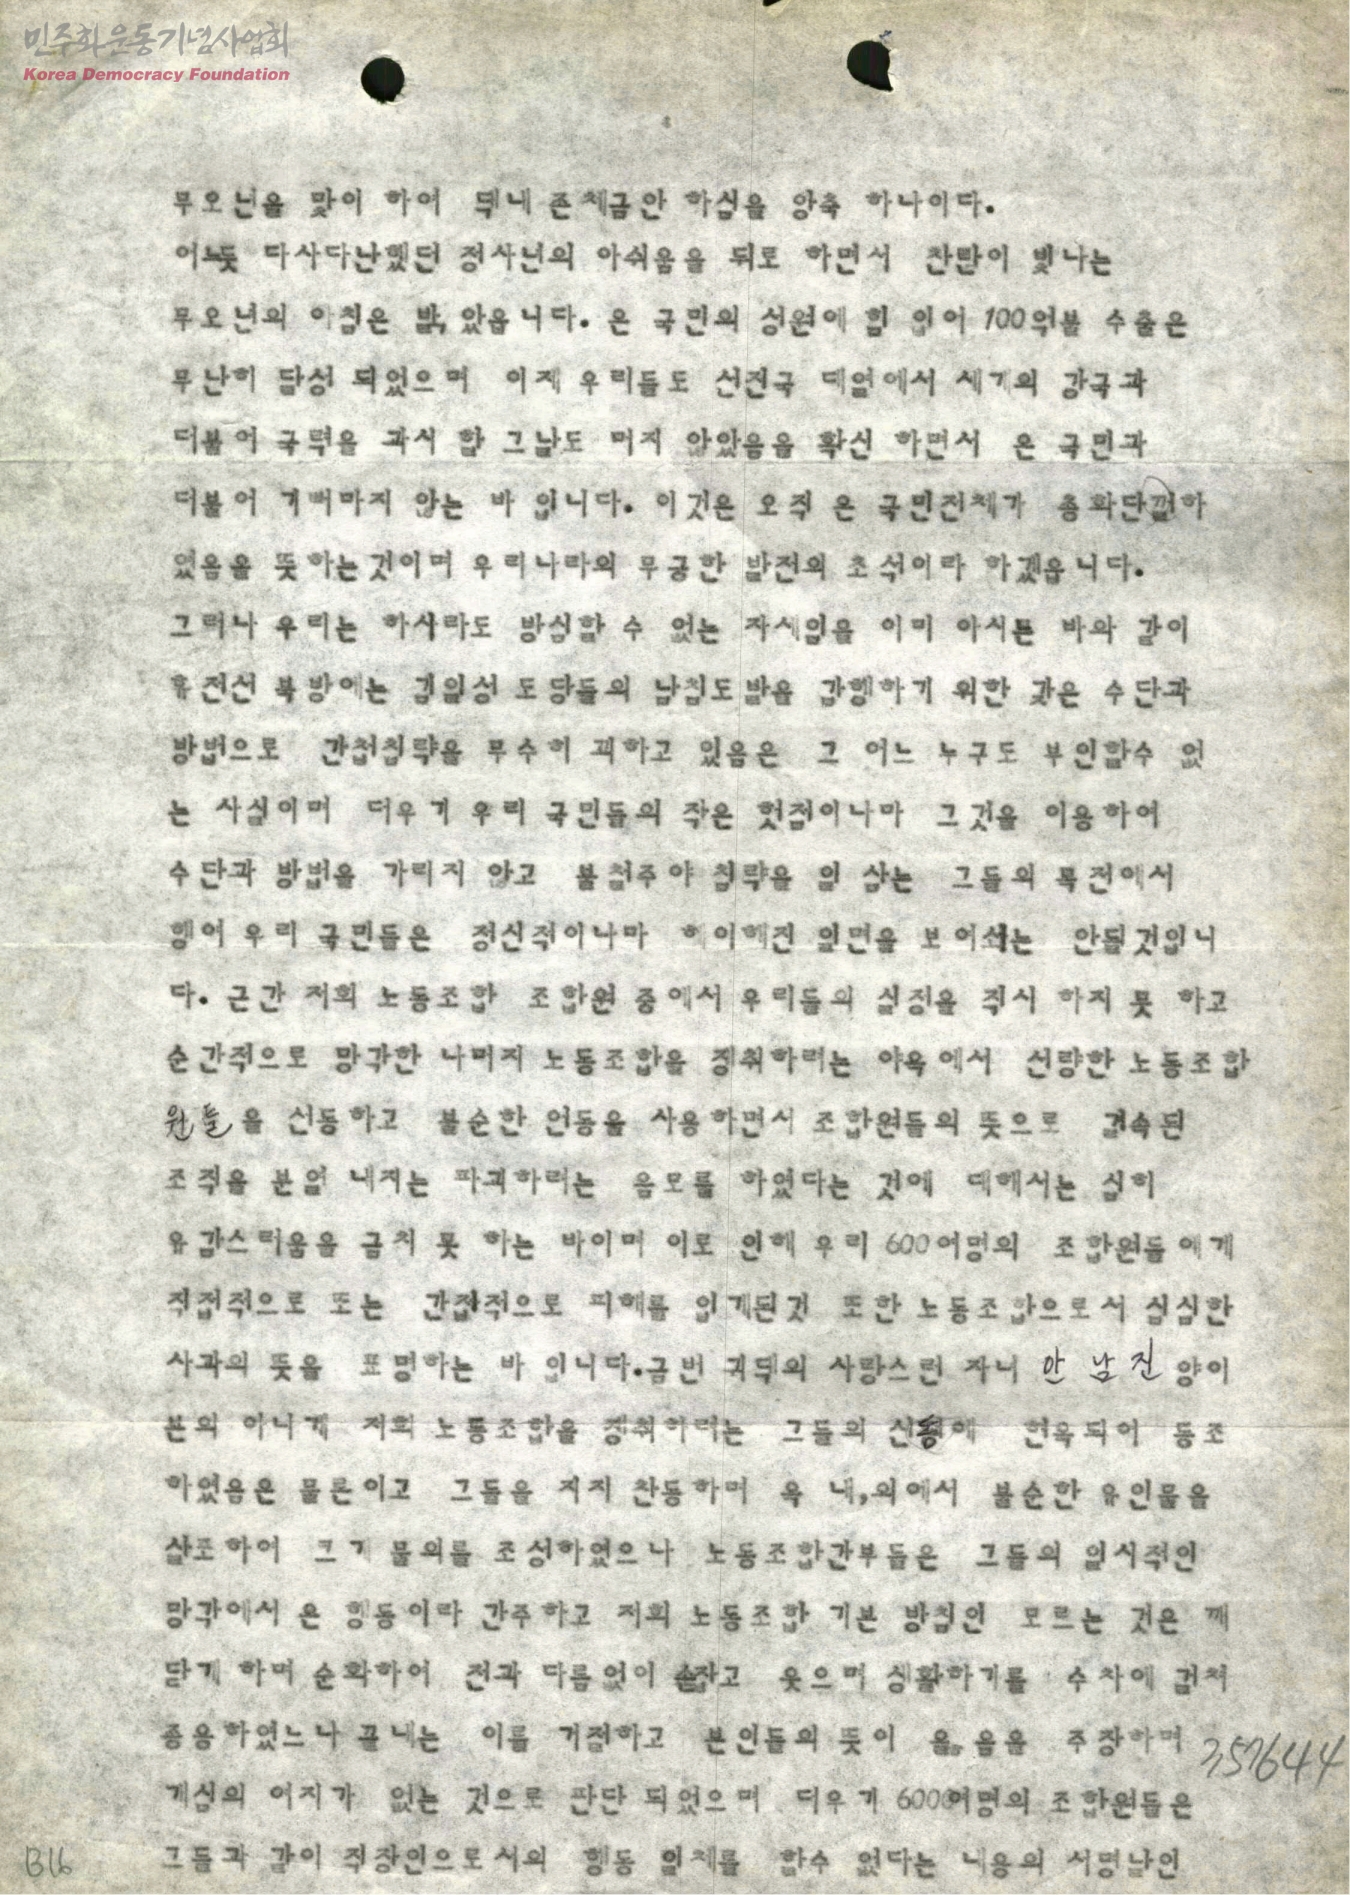 민주화운동기념사업회
Korea Democracy Foundation
무오년을 맞이 하여 댁내 존체금안 하심을 앙축 하나이다.
어느듯 다사다난했던 정사년의 아쉬움을 뒤로 하면서 찬란이 빛나는
무오년의 아침은 밝았읍니다. 온 국민의 성원에 힘 입어 100억불 수출은
무난히 달성 되었으며 이제 우리들도 선진국 대열에서 세계의 강국과
더불어 국력을 과시 할 그날도 머지 않았음을 확신 하면서 온 국민과
더불어 기뻐마지 않는 바 입니다. 이것은 오직 온 국민전체가 총화단결하
였음을 뜻하는것이며 우리나라의 무궁한 발전의 초석이라 하겠읍니다.
그러나 우리는 하시라도 방심할 수 없는 자세임을 이미 아시는 바와 같이
휴전선 북방에는 김일성 도당들의 남침도발을 감행하기 위한 갖은 수단과
방법으로 간첩침략을 무수히 꾀하고 있음은 그 어느 누구도 부인할수 없
는 사실이며 더우기 우리 국민들의 작은 헛점이나마 그것을 이용하여
수단과 방법을 가리지 않고 불철주야 침략을 일 삼는 그들의 목전에서
행여 우리 국민들은 정신적이나마 헤이해진 일면을 보여서는 안될것입니
다. 근간 저희 노동조합 조합원 중에서 우리들의 실정을 직시 하지 못 하고
순간적으로 망각한 나머지 노동조합을 쟁취하려는 야욕에서 선량한 노동조합
원들을 선동하고 불순한 언동을 사용하면서 조합원들의 뜻으로 결속된
조직을 분열 내지는 파괴하려는 음모를 하였다는 것에 대해서는 심히
유감스러움을 금치 못 하는 바이며 이로 인해 우리 600여명의 조합원들에게
직접적으로 또는 간접적으로 피해를 입게된것 또한 노동조합으로서 심심한
사과의 뜻을 표명하는 바 입니다.금번 귀댁의 사랑스런 자녀 안남진 양이
본의 아니게 저희 노동조합을 쟁취하려는 그들의 선동에 현혹되어 동조
하였음은 물론이고 그들을 지지 찬동하며 옥 내,외에서 불순한 유인물을
살포하여 크게 물의를 조성하였으나 노동조합간부들은 그들의 일시적인
망각에서 온 행동이라 간주하고 저희 노동조합 기본 방침인 모르는 것은 깨
닫게 하며 순화하여 전과 다름없이 손잡고 웃으며 생활하기를 수차에 걸쳐
종용하였느나 끝내는 이를 거절하고 본인들의 뜻이 옳음을 주장하며
개심의 여지가 없는 것으로 판단 되었으며 더우기 600여명의 조합원들은
그들과 같이 직장인으로서의 행동 일체를 할수 없다는 내용의 서명날인
357644
B16